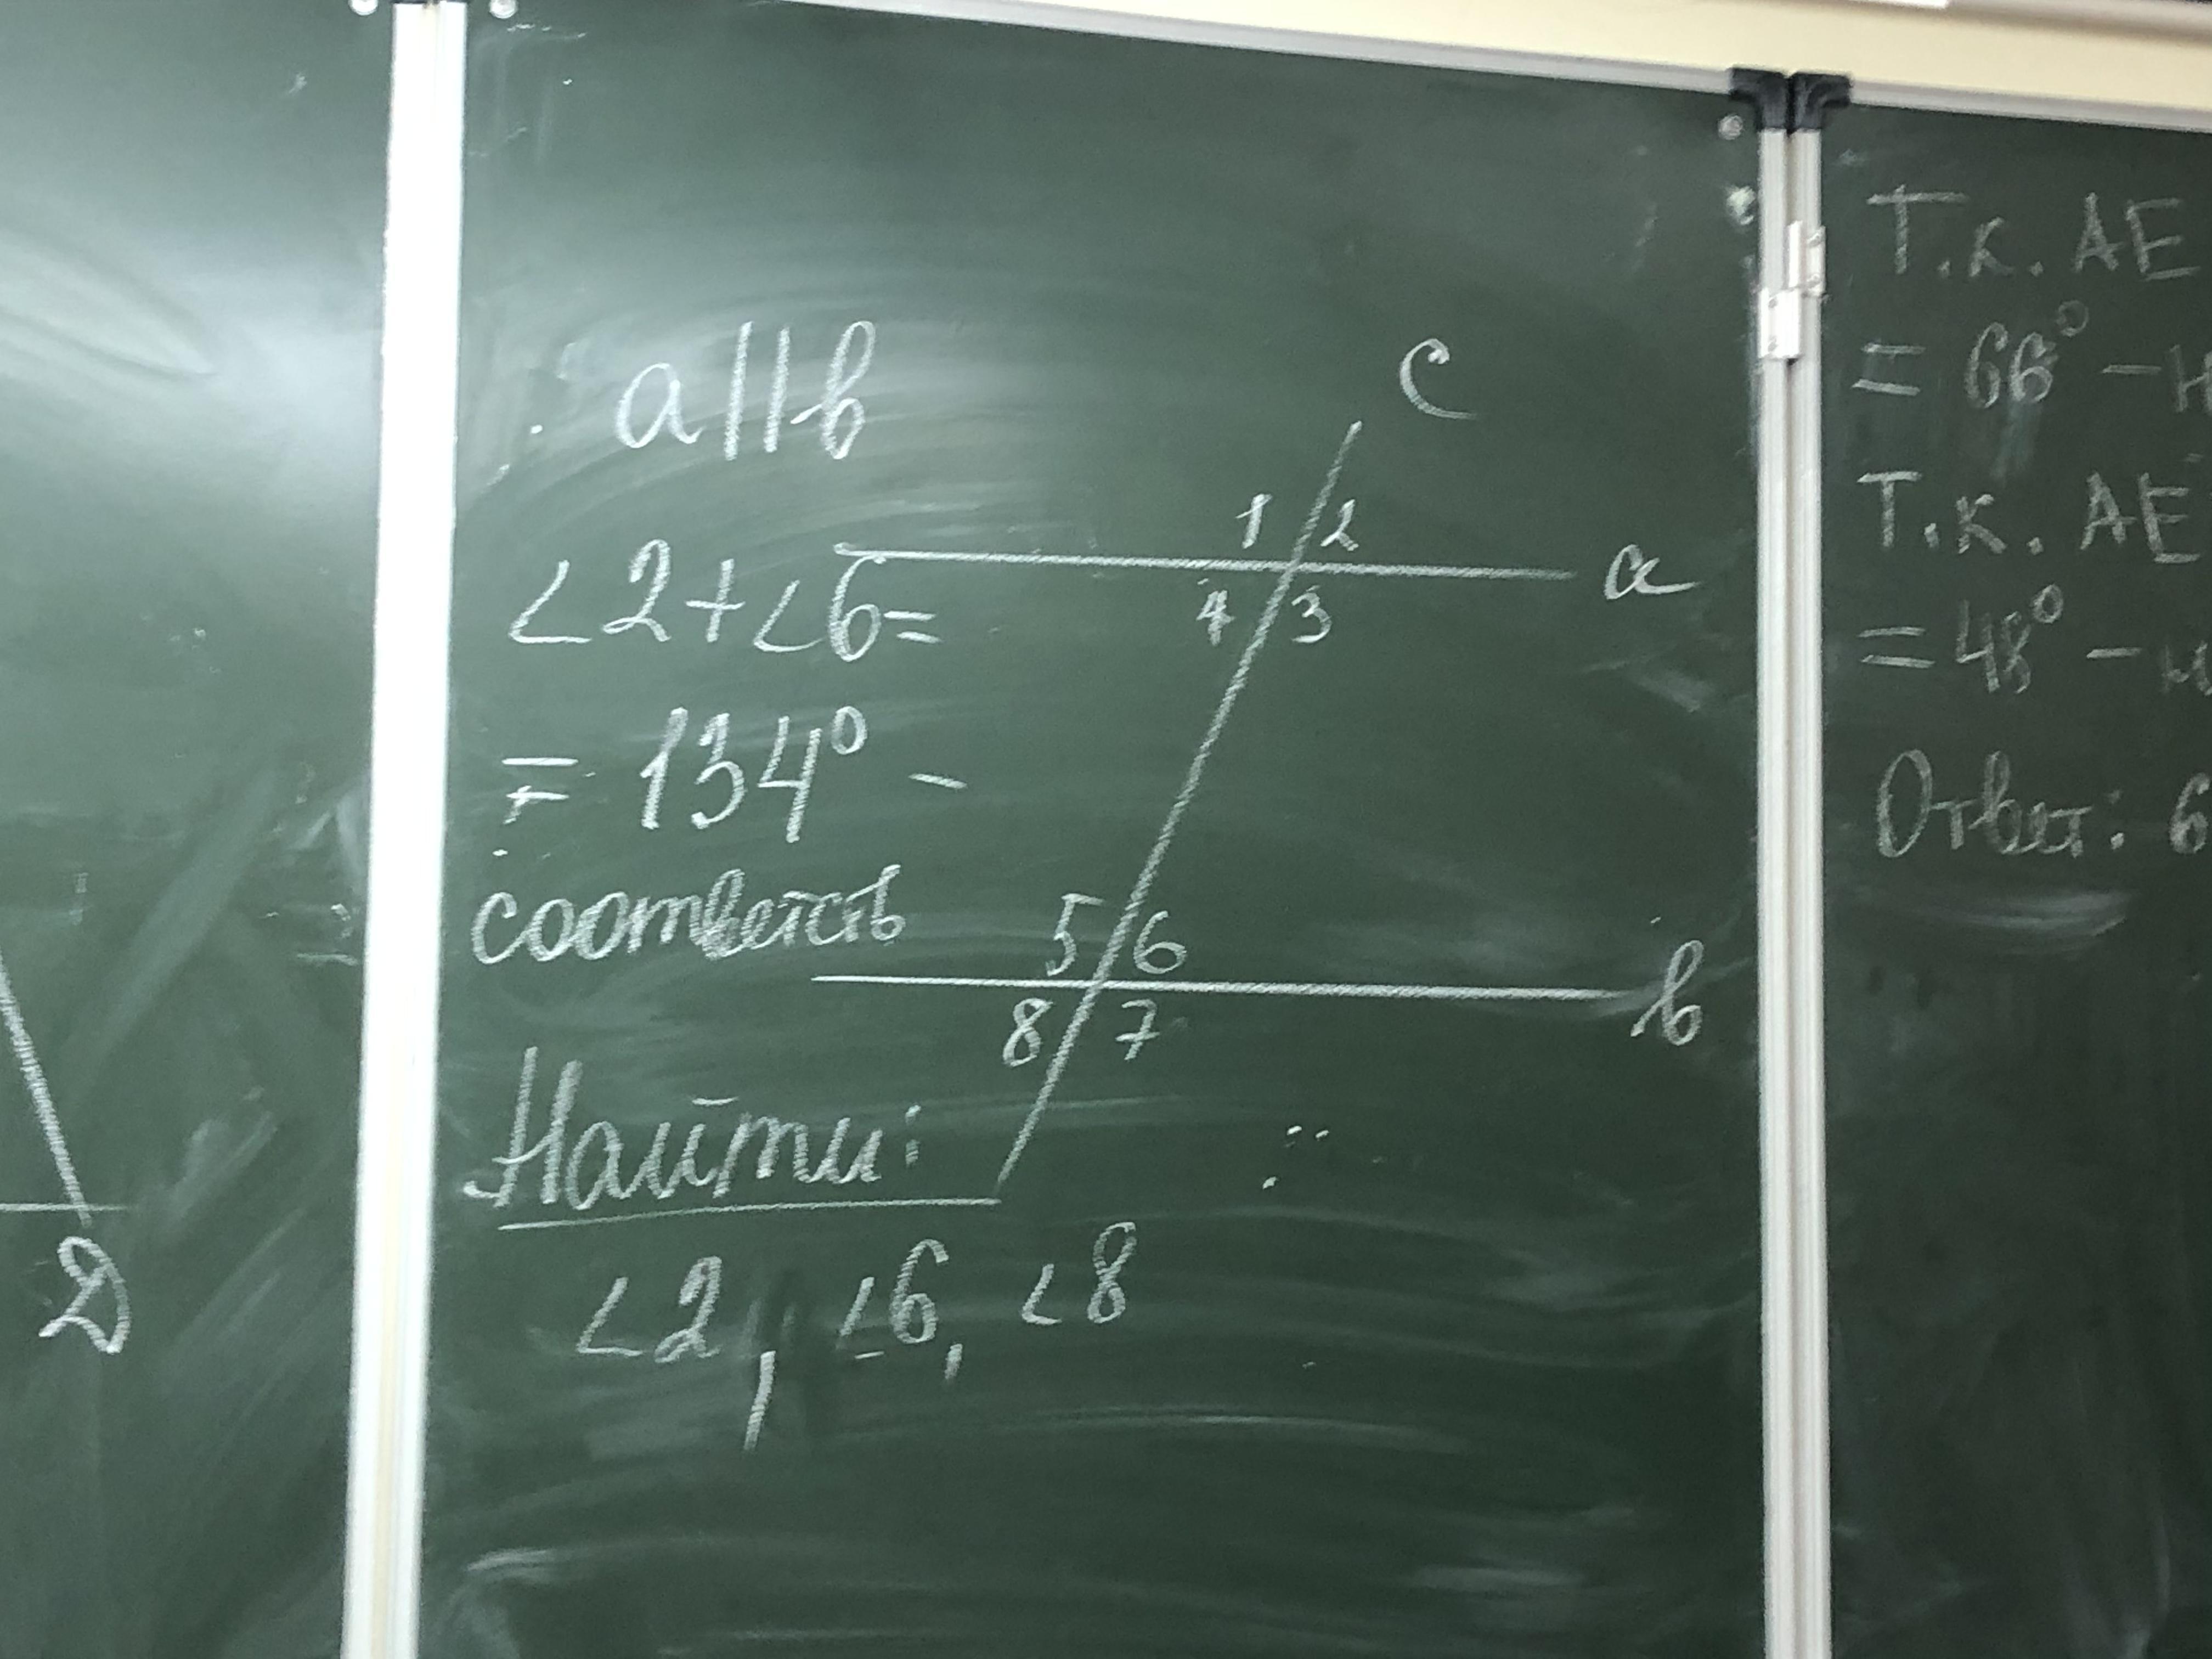 a || b
∠2+∠6=
= 134° –
соответств
Найти:
∠2, ∠6, ∠8
c
1 2
a
4 3
5 6
b
8 7
D
Т.к. AE
= 66° – н
Т.к. AE
= 48° – н
Ответ: 6